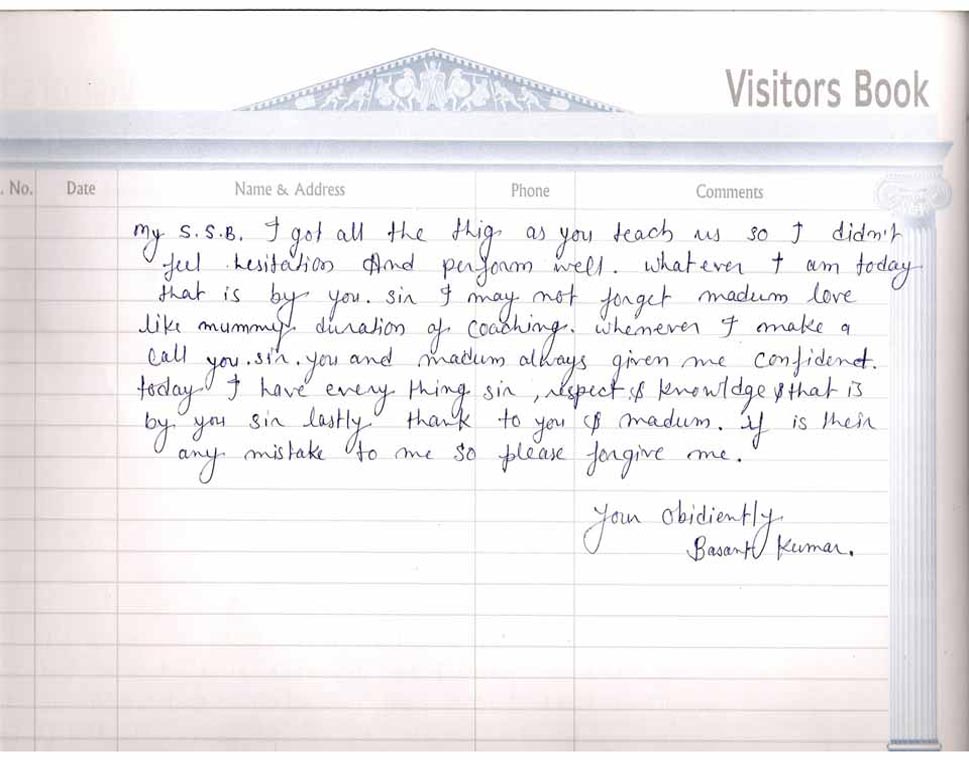 Visitors Book
. No. Date Name & Address Phone Comments
My S.S.B. I got all the thig as you teach us so I didn't
feel hesitation And perform well. whatever I am today
that is by you. sir I may not forget madum love
like mummy duration of coaching. whenever I make a
call you.sir.you and madum always given me confident.
today I have every thing sir, respect & knowldge & that is
by you sir lastly thank to you & madum. if is their
any mistake to me so please forgive me.
Your obidiently
Basant Kumar.